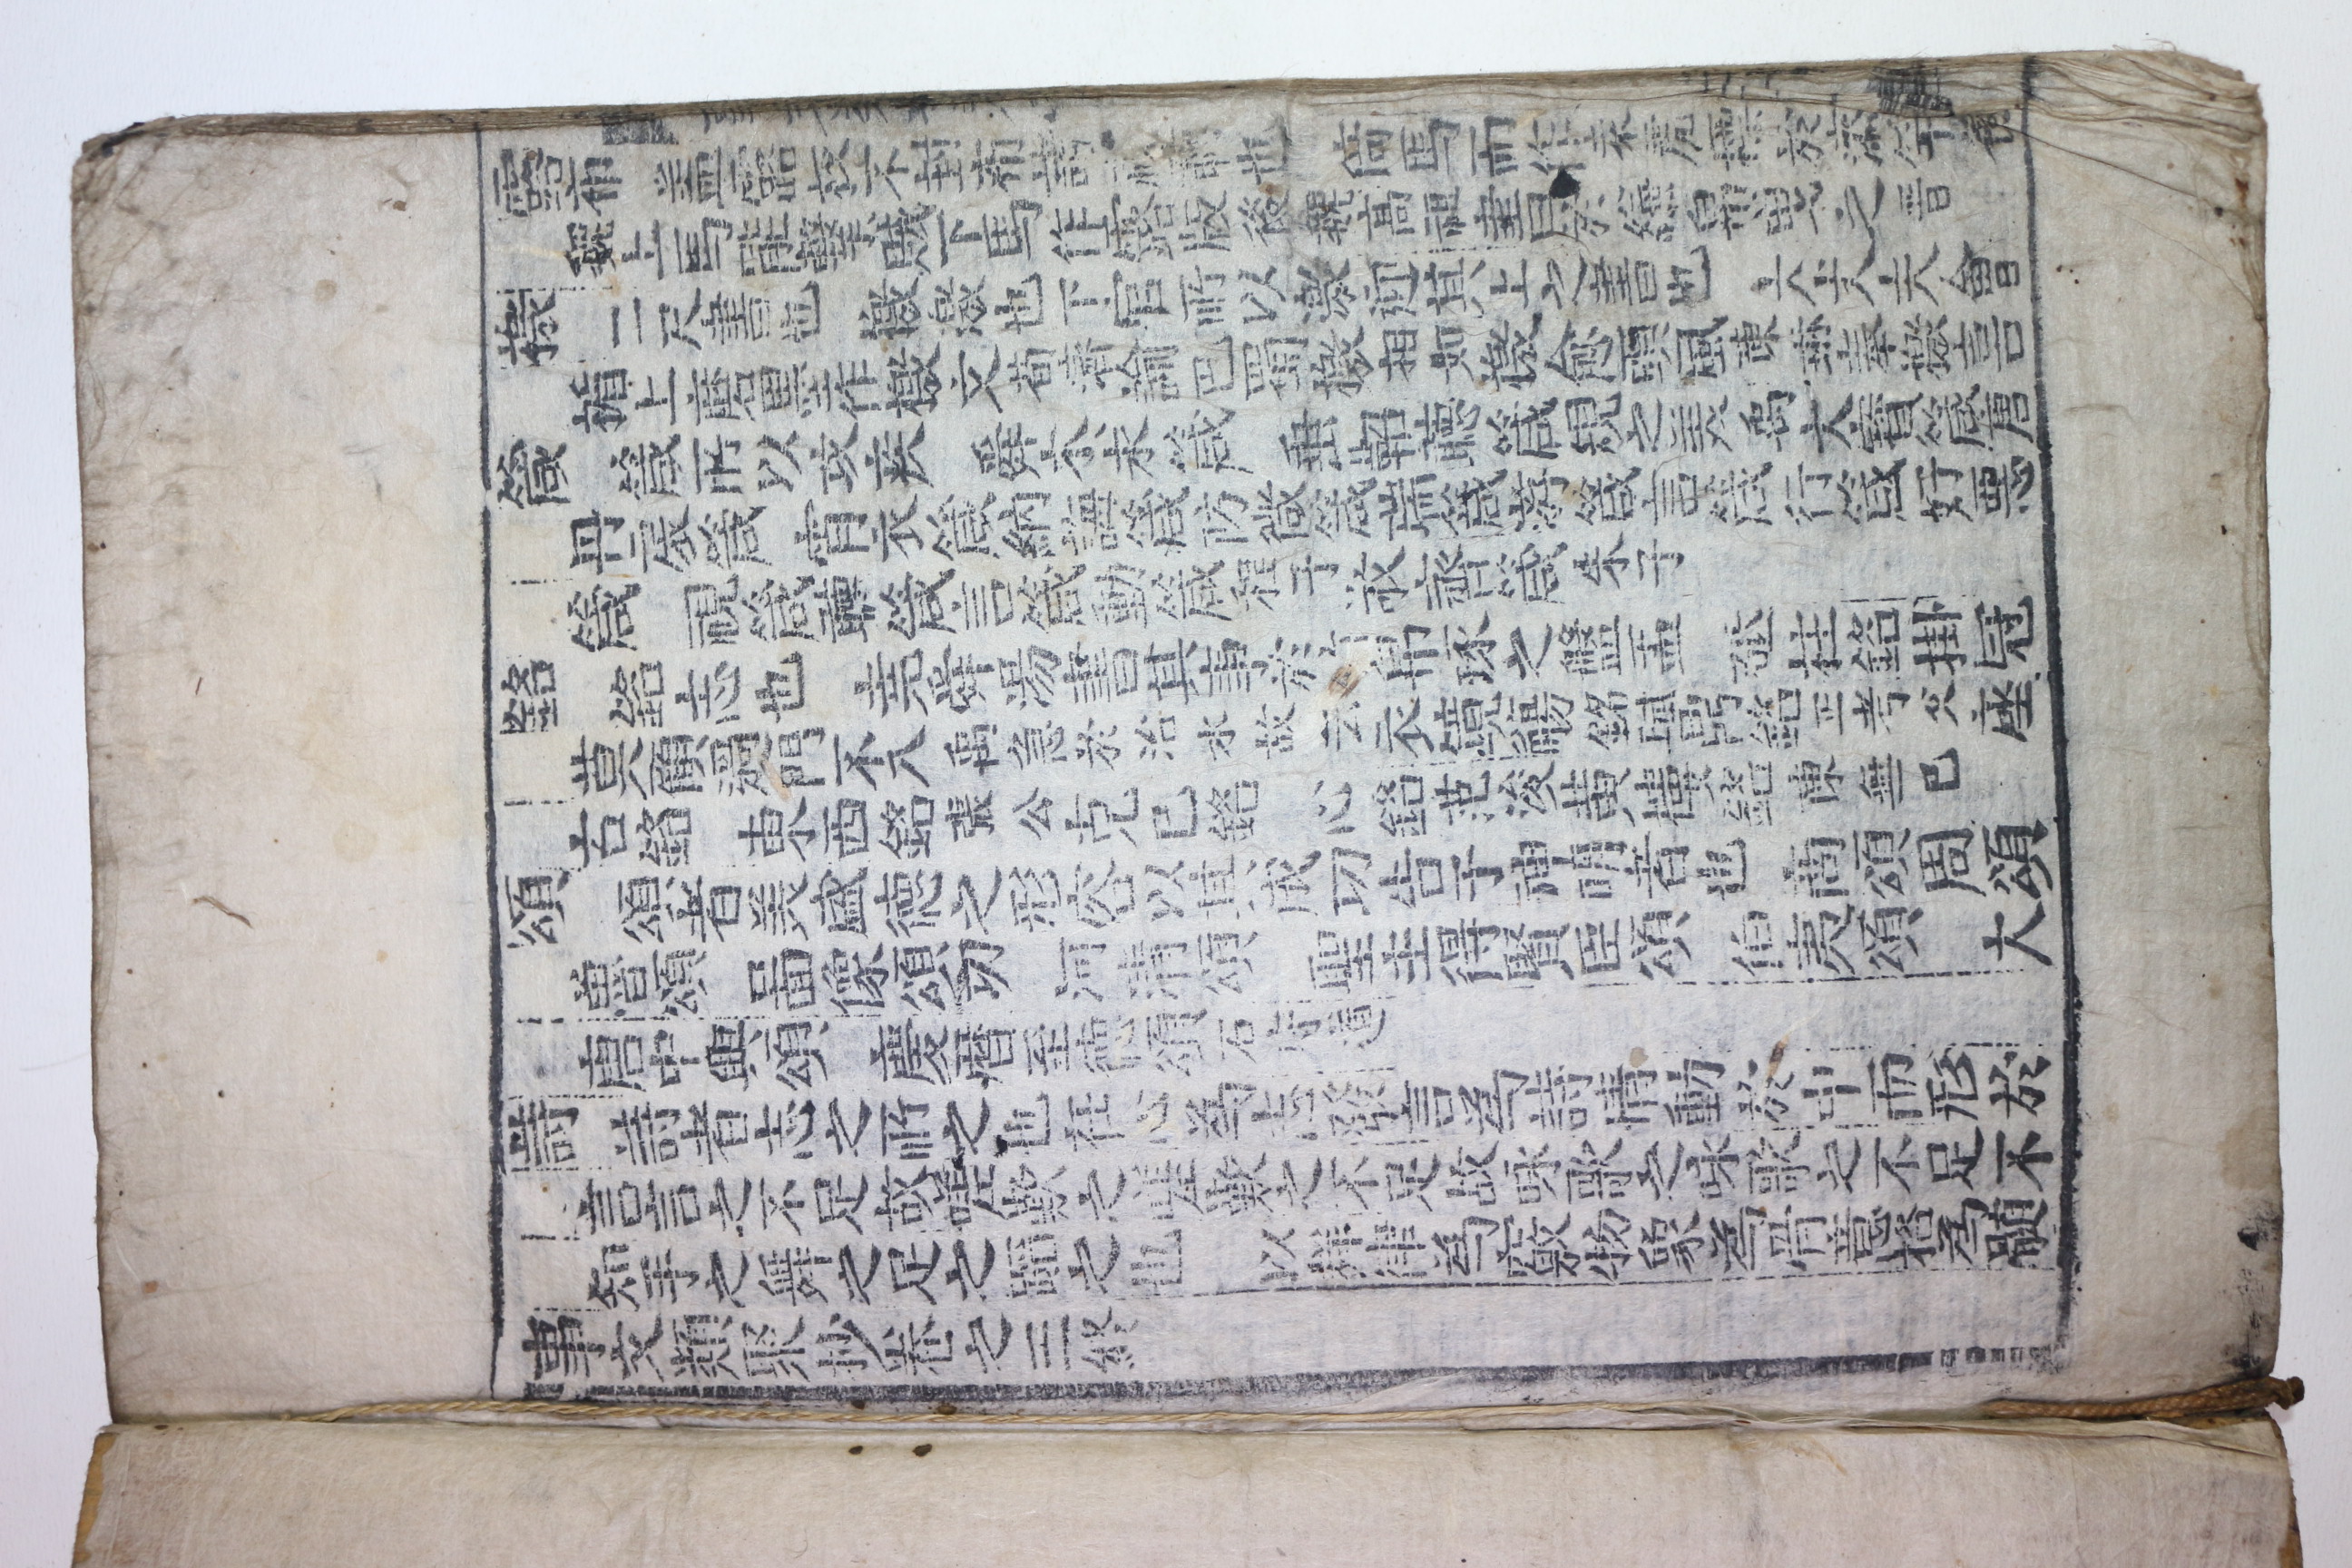 露布 露 不封布 也 倚馬而作 袁虎
上馬 賊下馬作露版 後魏高祖 之言
檄 二尺書也 檄激也下官所以激迎其上之書也 大夫夫會
楯上磨墨作檄文 荀濟 諭巴蜀檄 相如 檄愈頭風 陳琳 奉檄言
箴 箴所以攻疾 舜求箴 垂軺聽箴規之美 禹 大寶箴 唐
丹扆箴 宵衣箴納誨箴防微箴瑞箴游箴言箴行箴好惡
箴 視箴聽箴言箴動箴 程子 敬齋箴 朱子
銘 銘志也 堯舜湯書其事於 帛琢之盤盂 砥柱銘掛冠
莫顧過門不入 禹急於治水故云 衣鏡觴銘 銘 正考父 座
古銘 東西銘 張公 克己銘 心銘 范浚 黄樓銘 陳無已
頌 頌者美盛德之形容以其成功告于神明者也 商頌周頌
魯頌 圖像頌功 河清頌 聖主得賢臣頌 伯夷頌 大
唐中興頌 慶曆至德頌 石守道
詩 詩者志之所之也在心為志發言為詩情動於中而形於
言言之不足故嗟歎之嗟歎之不足故咏歌之咏歌之不足不
知手之舞之足之蹈之也 以 律為竅物象為骨意格為髓
事文類聚抄卷之三終